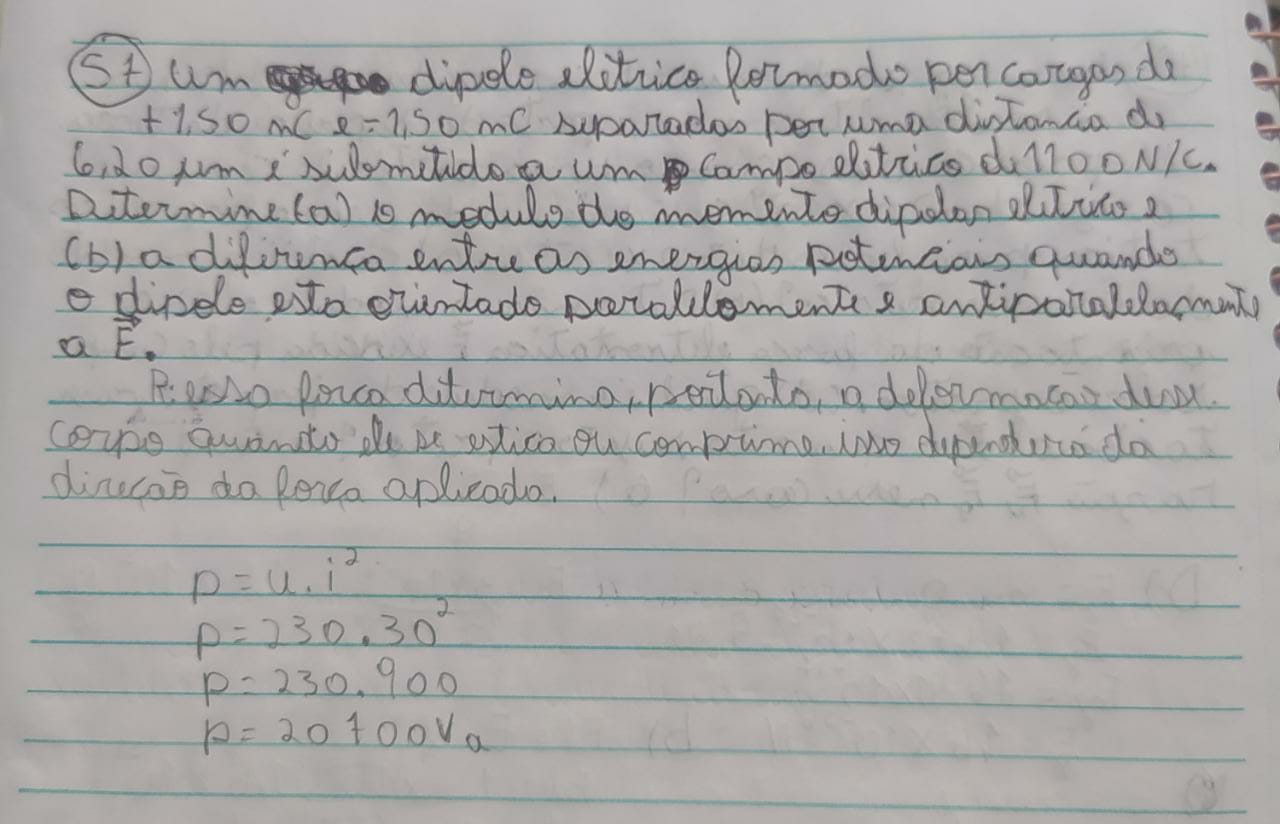 57 Um dipolo eletrico formado por cargas de
+1,50 nC e -1,50 nC separadas por uma distancia de
6,20 μm é submetido a um campo eletrico de 1100 N/C.
Determine (a) o modulo do momento dipolar eletrico e
(b) a diferença entre as energias potenciais quando
o dipolo esta orientado paralelamente e antiparalelamente
a E.
R: essa força determina, portanto, a deformação desse
corpo quando ele se estica ou comprime. isso dependerá da
direção da força aplicada.
p = u . i²
p = 230 . 30²
p = 230 . 900
p = 20700 Va